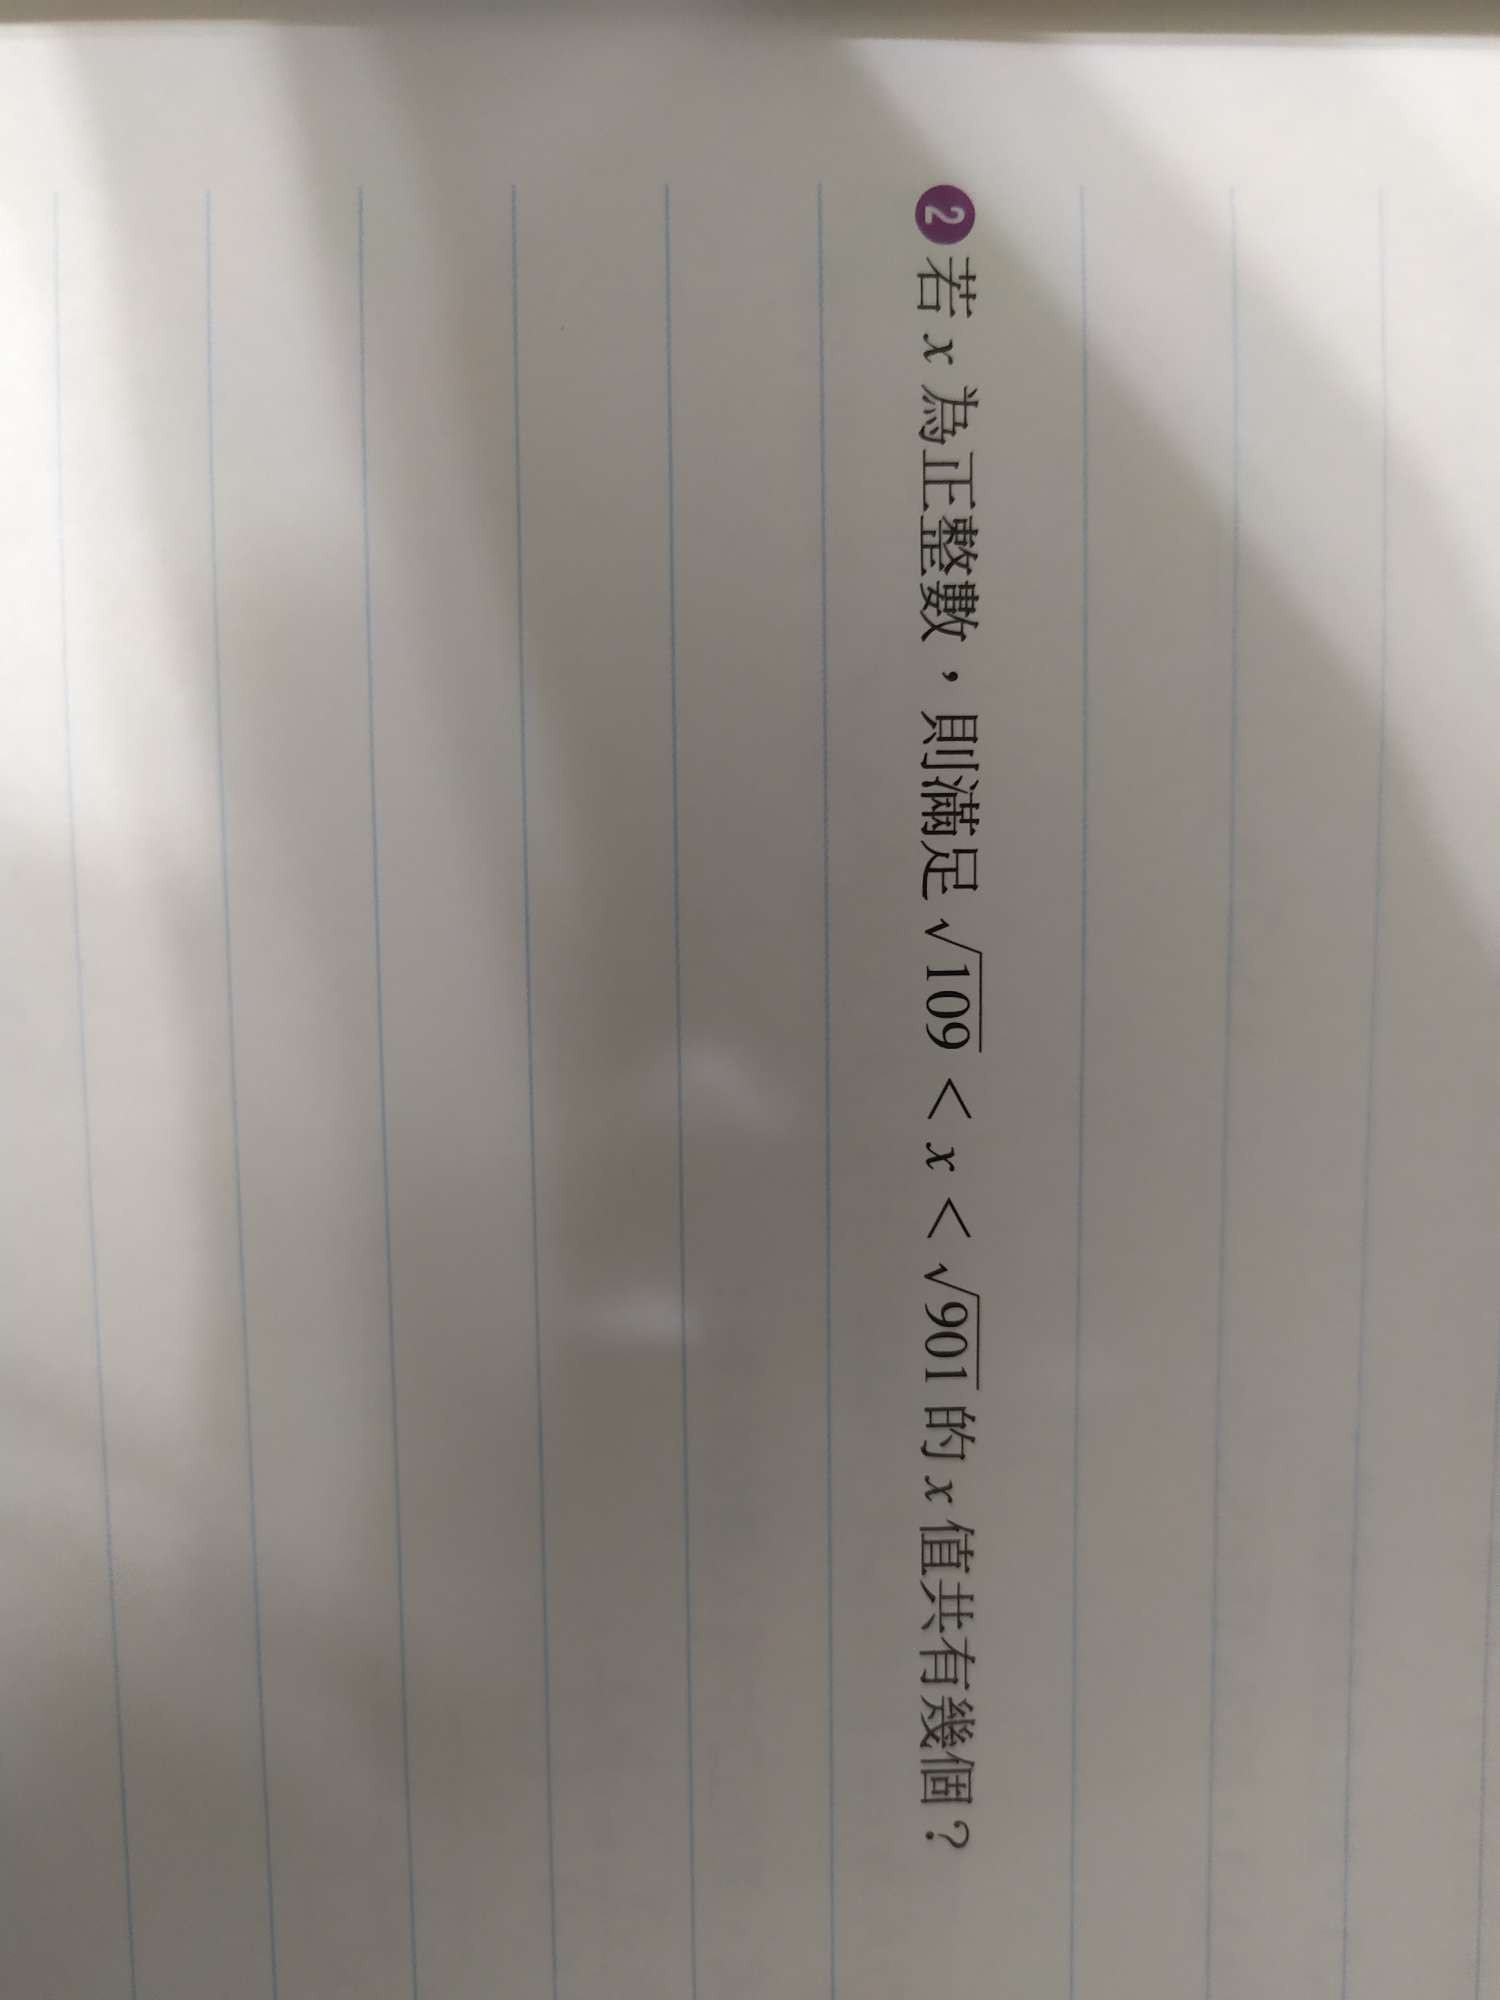 2 若 x 為正整數，則滿足 √109 < x < √901 的 x 值共有幾個？